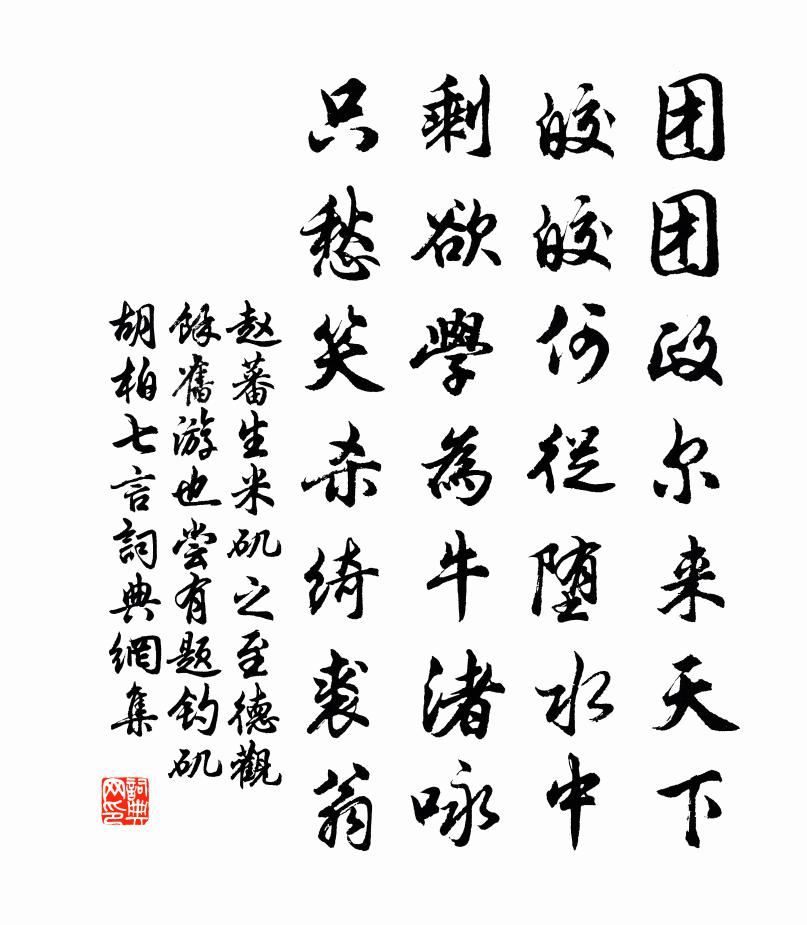 团团政尔来天下
皎皎何从堕水中
剩欲學為牛渚咏
只愁笑杀绮裘翁
赵蕃生米矶之至德觀
餘舊游也尝有题钓矶
胡柏七言詞典網集
詞典网印